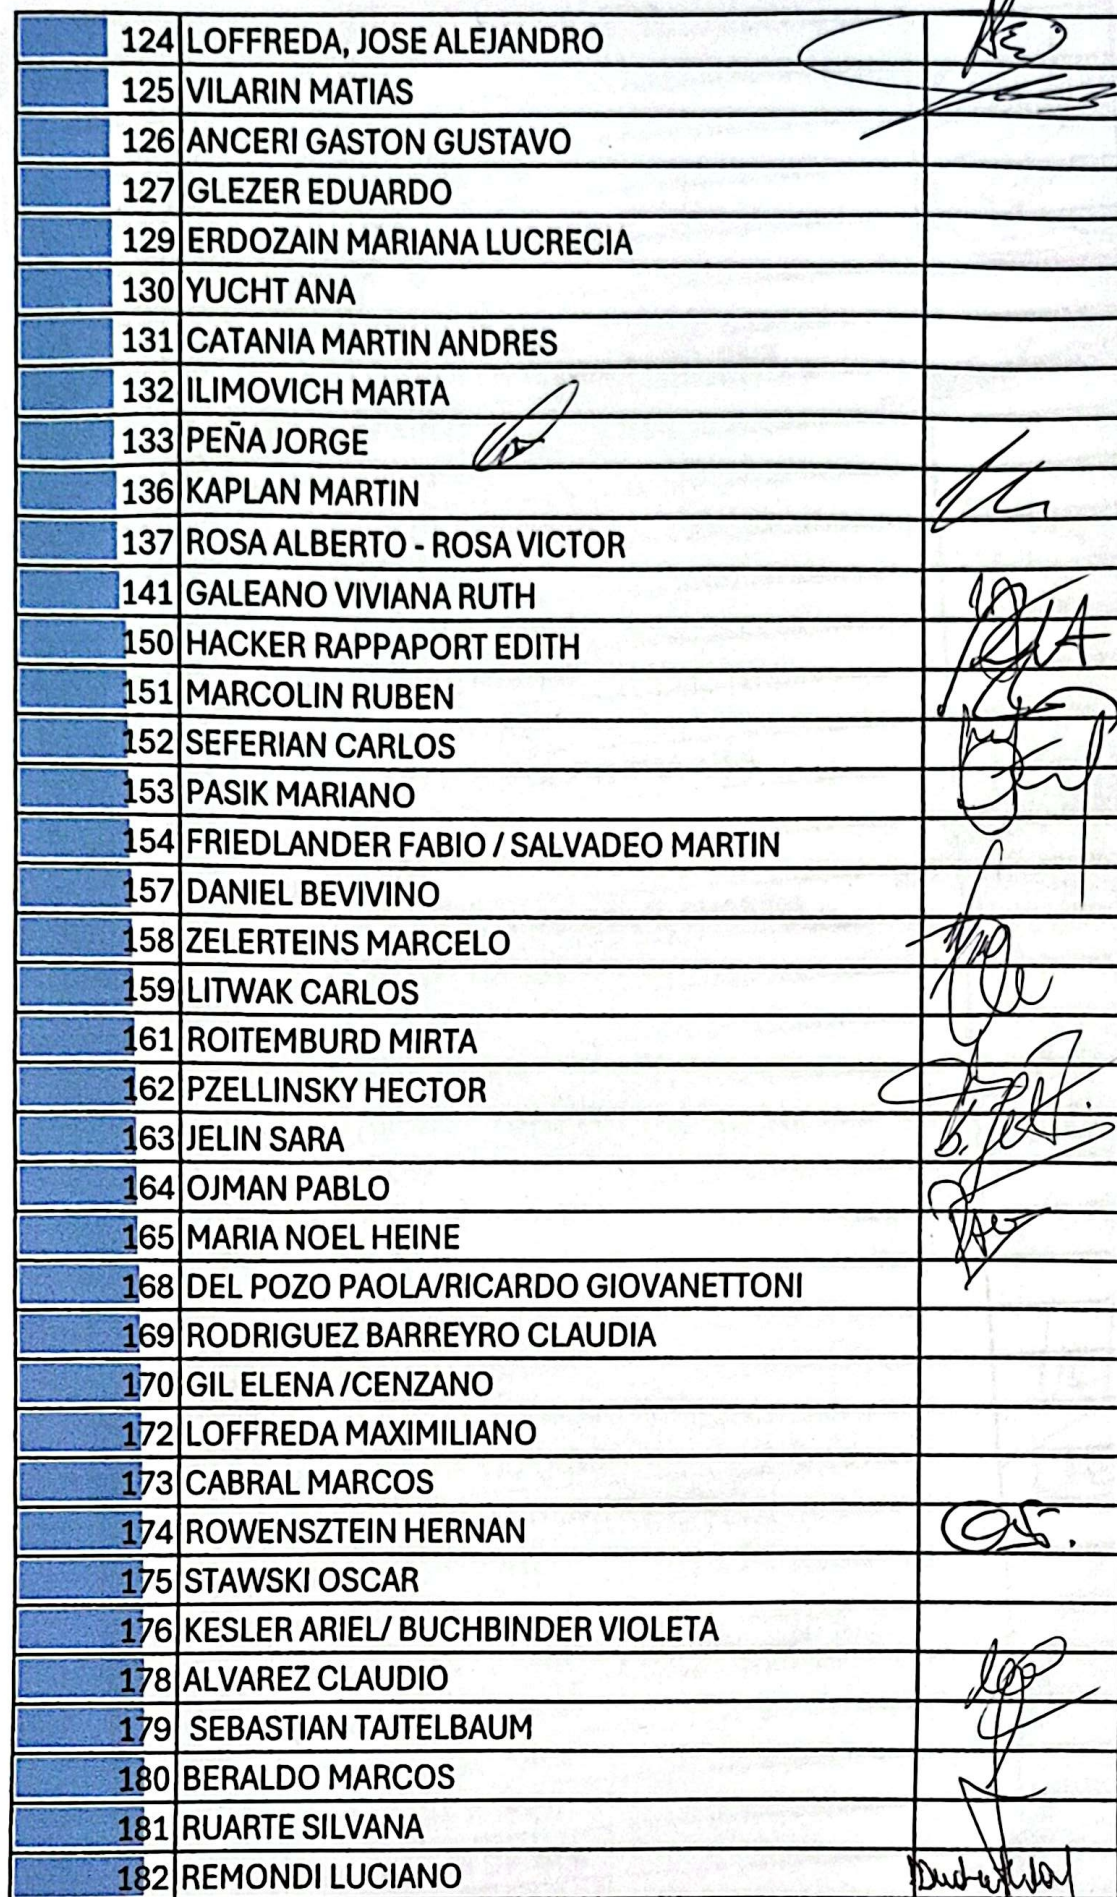 124 LOFFREDA, JOSE ALEJANDRO
125 VILARIN MATIAS
126 ANCERI GASTON GUSTAVO
127 GLEZER EDUARDO
129 ERDOZAIN MARIANA LUCRECIA
130 YUCHT ANA
131 CATANIA MARTIN ANDRES
132 ILIMOVICH MARTA
133 PEÑA JORGE
136 KAPLAN MARTIN
137 ROSA ALBERTO - ROSA VICTOR
141 GALEANO VIVIANA RUTH
150 HACKER RAPPAPORT EDITH
151 MARCOLIN RUBEN
152 SEFERIAN CARLOS
153 PASIK MARIANO
154 FRIEDLANDER FABIO / SALVADEO MARTIN
157 DANIEL BEVIVINO
158 ZELERTEINS MARCELO
159 LITWAK CARLOS
161 ROITEMBURD MIRTA
162 PZELLINSKY HECTOR
163 JELIN SARA
164 OJMAN PABLO
165 MARIA NOEL HEINE
168 DEL POZO PAOLA/RICARDO GIOVANETTONI
169 RODRIGUEZ BARREYRO CLAUDIA
170 GIL ELENA /CENZANO
172 LOFFREDA MAXIMILIANO
173 CABRAL MARCOS
174 ROWENSZTEIN HERNAN
175 STAWSKI OSCAR
176 KESLER ARIEL/ BUCHBINDER VIOLETA
178 ALVAREZ CLAUDIO
179 SEBASTIAN TAJTELBAUM
180 BERALDO MARCOS
181 RUARTE SILVANA
182 REMONDI LUCIANO